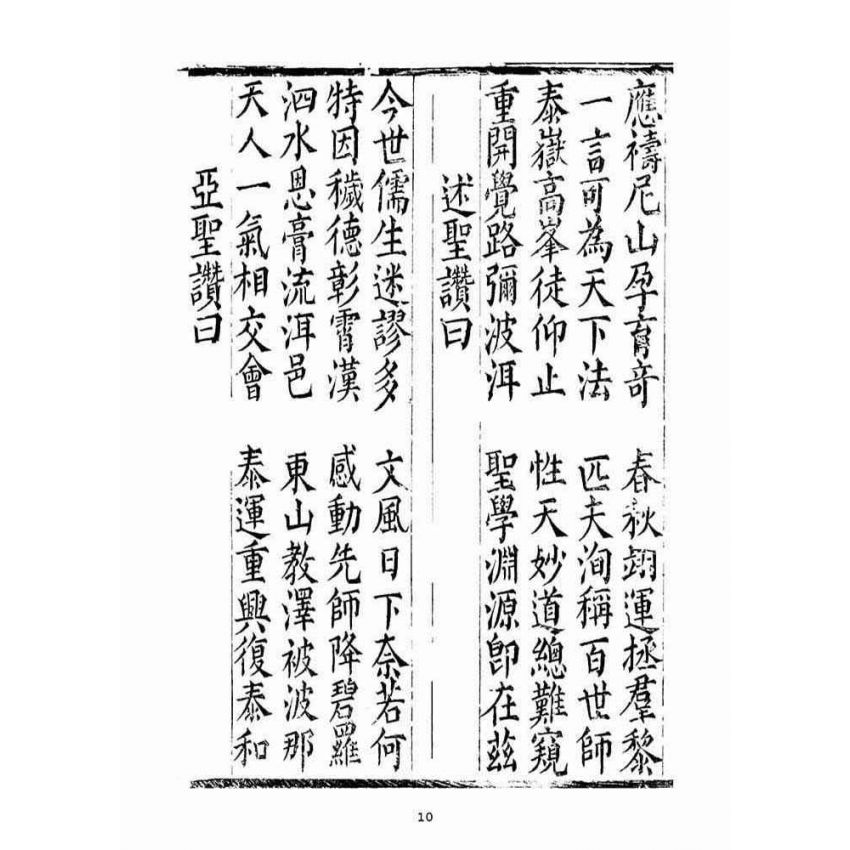 應禱尼山孕育奇　春秋翊運拯羣黎
一言可為天下法　匹夫洵稱百世師
泰嶽高峯徒仰止　性天妙道總難窺
重開覺路彌波洱　聖學淵源即在茲
述聖讚曰
今世儒生迷謬多　文風日下奈若何
特因穢德彰霄漢　感動先師降碧羅
泗水恩膏流洱邑　東山教澤被波那
天人一氣相交會　泰運重興復泰和
亞聖讚曰
10